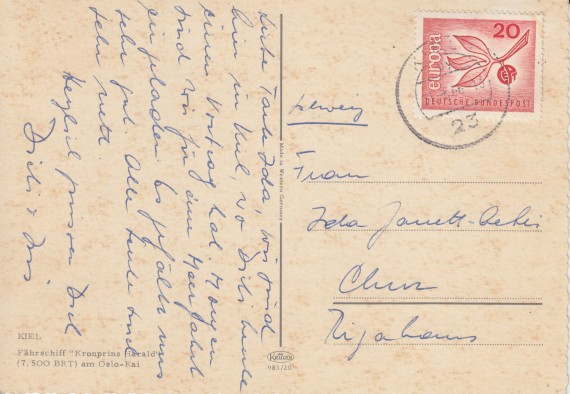 Liebe Tante Ida, wir sind
hier in Kiel wo Dili heute
einen Vortrag hat. Morgen
sind wir für eine Meerfahrt
eingeladen. Es gefällt uns
sehr gut. Alle Leute sind
sehr nett.
Herzlich grüssen Dich
Dili & Iris
KIEL
Fährschiff "Kronprins Harald"
(7,500 BRT) am Oslo-Kai
Made in Western Germany
Krüger
985/20
20
europa
DEUTSCHE BUNDESPOST
23
Schweiz
Frau
Ida
Chur
Rigahaus